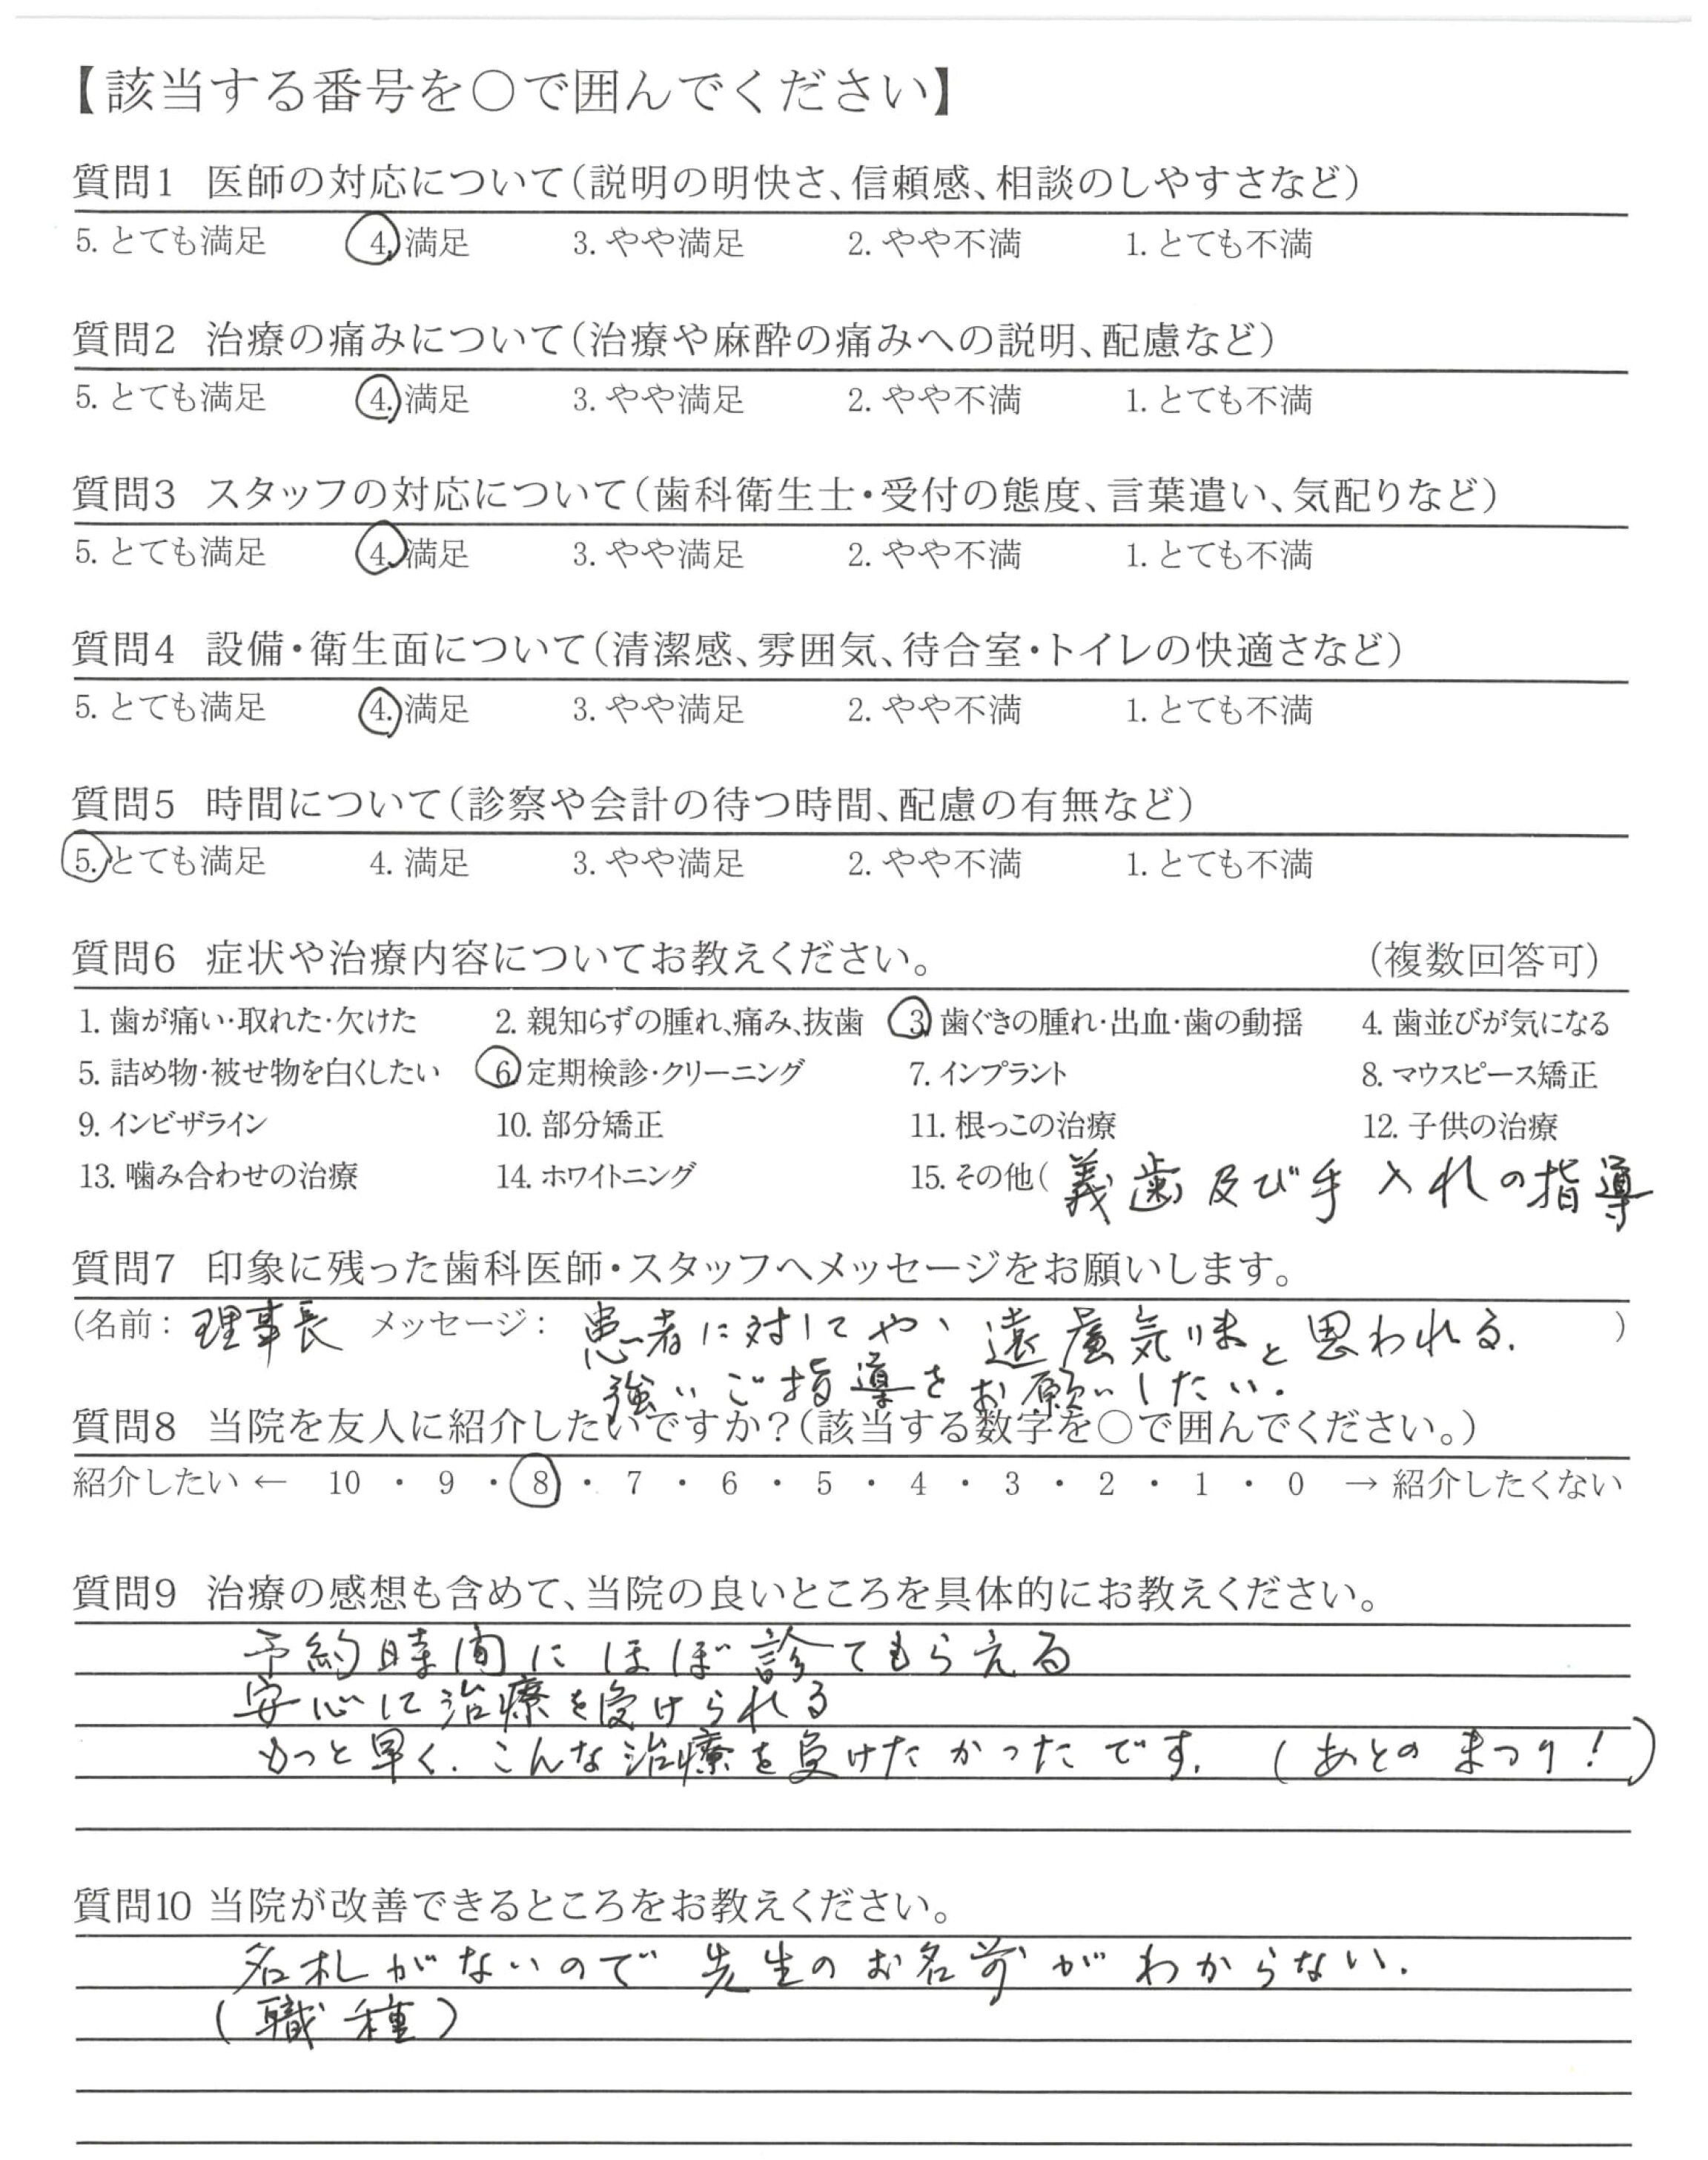 【該当する番号を○で囲んでください】
質問1 医師の対応について(説明の明快さ、信頼感、相談のしやすさなど)
5. とても満足 4. 満足 3. やや満足 2. やや不満 1. とても不満
質問2 治療の痛みについて(治療や麻酔の痛みへの説明、配慮など)
5. とても満足 4. 満足 3. やや満足 2. やや不満 1. とても不満
質問3 スタッフの対応について(歯科衛生士・受付の態度、言葉遣い、気配りなど)
5. とても満足 4. 満足 3. やや満足 2. やや不満 1. とても不満
質問4 設備・衛生面について(清潔感、雰囲気、待合室・トイレの快適さなど)
5. とても満足 4. 満足 3. やや満足 2. やや不満 1. とても不満
質問5 時間について(診察や会計の待つ時間、配慮の有無など)
5. とても満足 4. 満足 3. やや満足 2. やや不満 1. とても不満
質問6 症状や治療内容についてお教えください。 (複数回答可)
1. 歯が痛い・取れた・欠けた 2. 親知らずの腫れ、痛み、抜歯 3. 歯ぐきの腫れ・出血・歯の動揺 4. 歯並びが気になる
5. 詰め物・被せ物を白くしたい 6. 定期検診・クリーニング 7. インプラント 8. マウスピース矯正
9. インビザライン 10. 部分矯正 11. 根っこの治療 12. 子供の治療
13. 噛み合わせの治療 14. ホワイトニング 15. その他( 義歯及び手入れの指導
質問7 印象に残った歯科医師・スタッフへメッセージをお願いします。
(名前: 理事長 メッセージ: 患者に対してやゝ遠慮気味と思われる. )
強いご指導をお願いしたい.
質問8 当院を友人に紹介したいですか?(該当する数字を○で囲んでください。)
紹介したい ← 10 ・ 9 ・ 8 ・ 7 ・ 6 ・ 5 ・ 4 ・ 3 ・ 2 ・ 1 ・ 0 → 紹介したくない
質問9 治療の感想も含めて、当院の良いところを具体的にお教えください。
予約時間にほぼ診てもらえる
安心して治療を受けられる
もっと早く. こんな治療を受けたかったです. (あとのまつり!)
質問10 当院が改善できるところをお教えください。
名札がないので先生のお名前がわからない.
(職種)